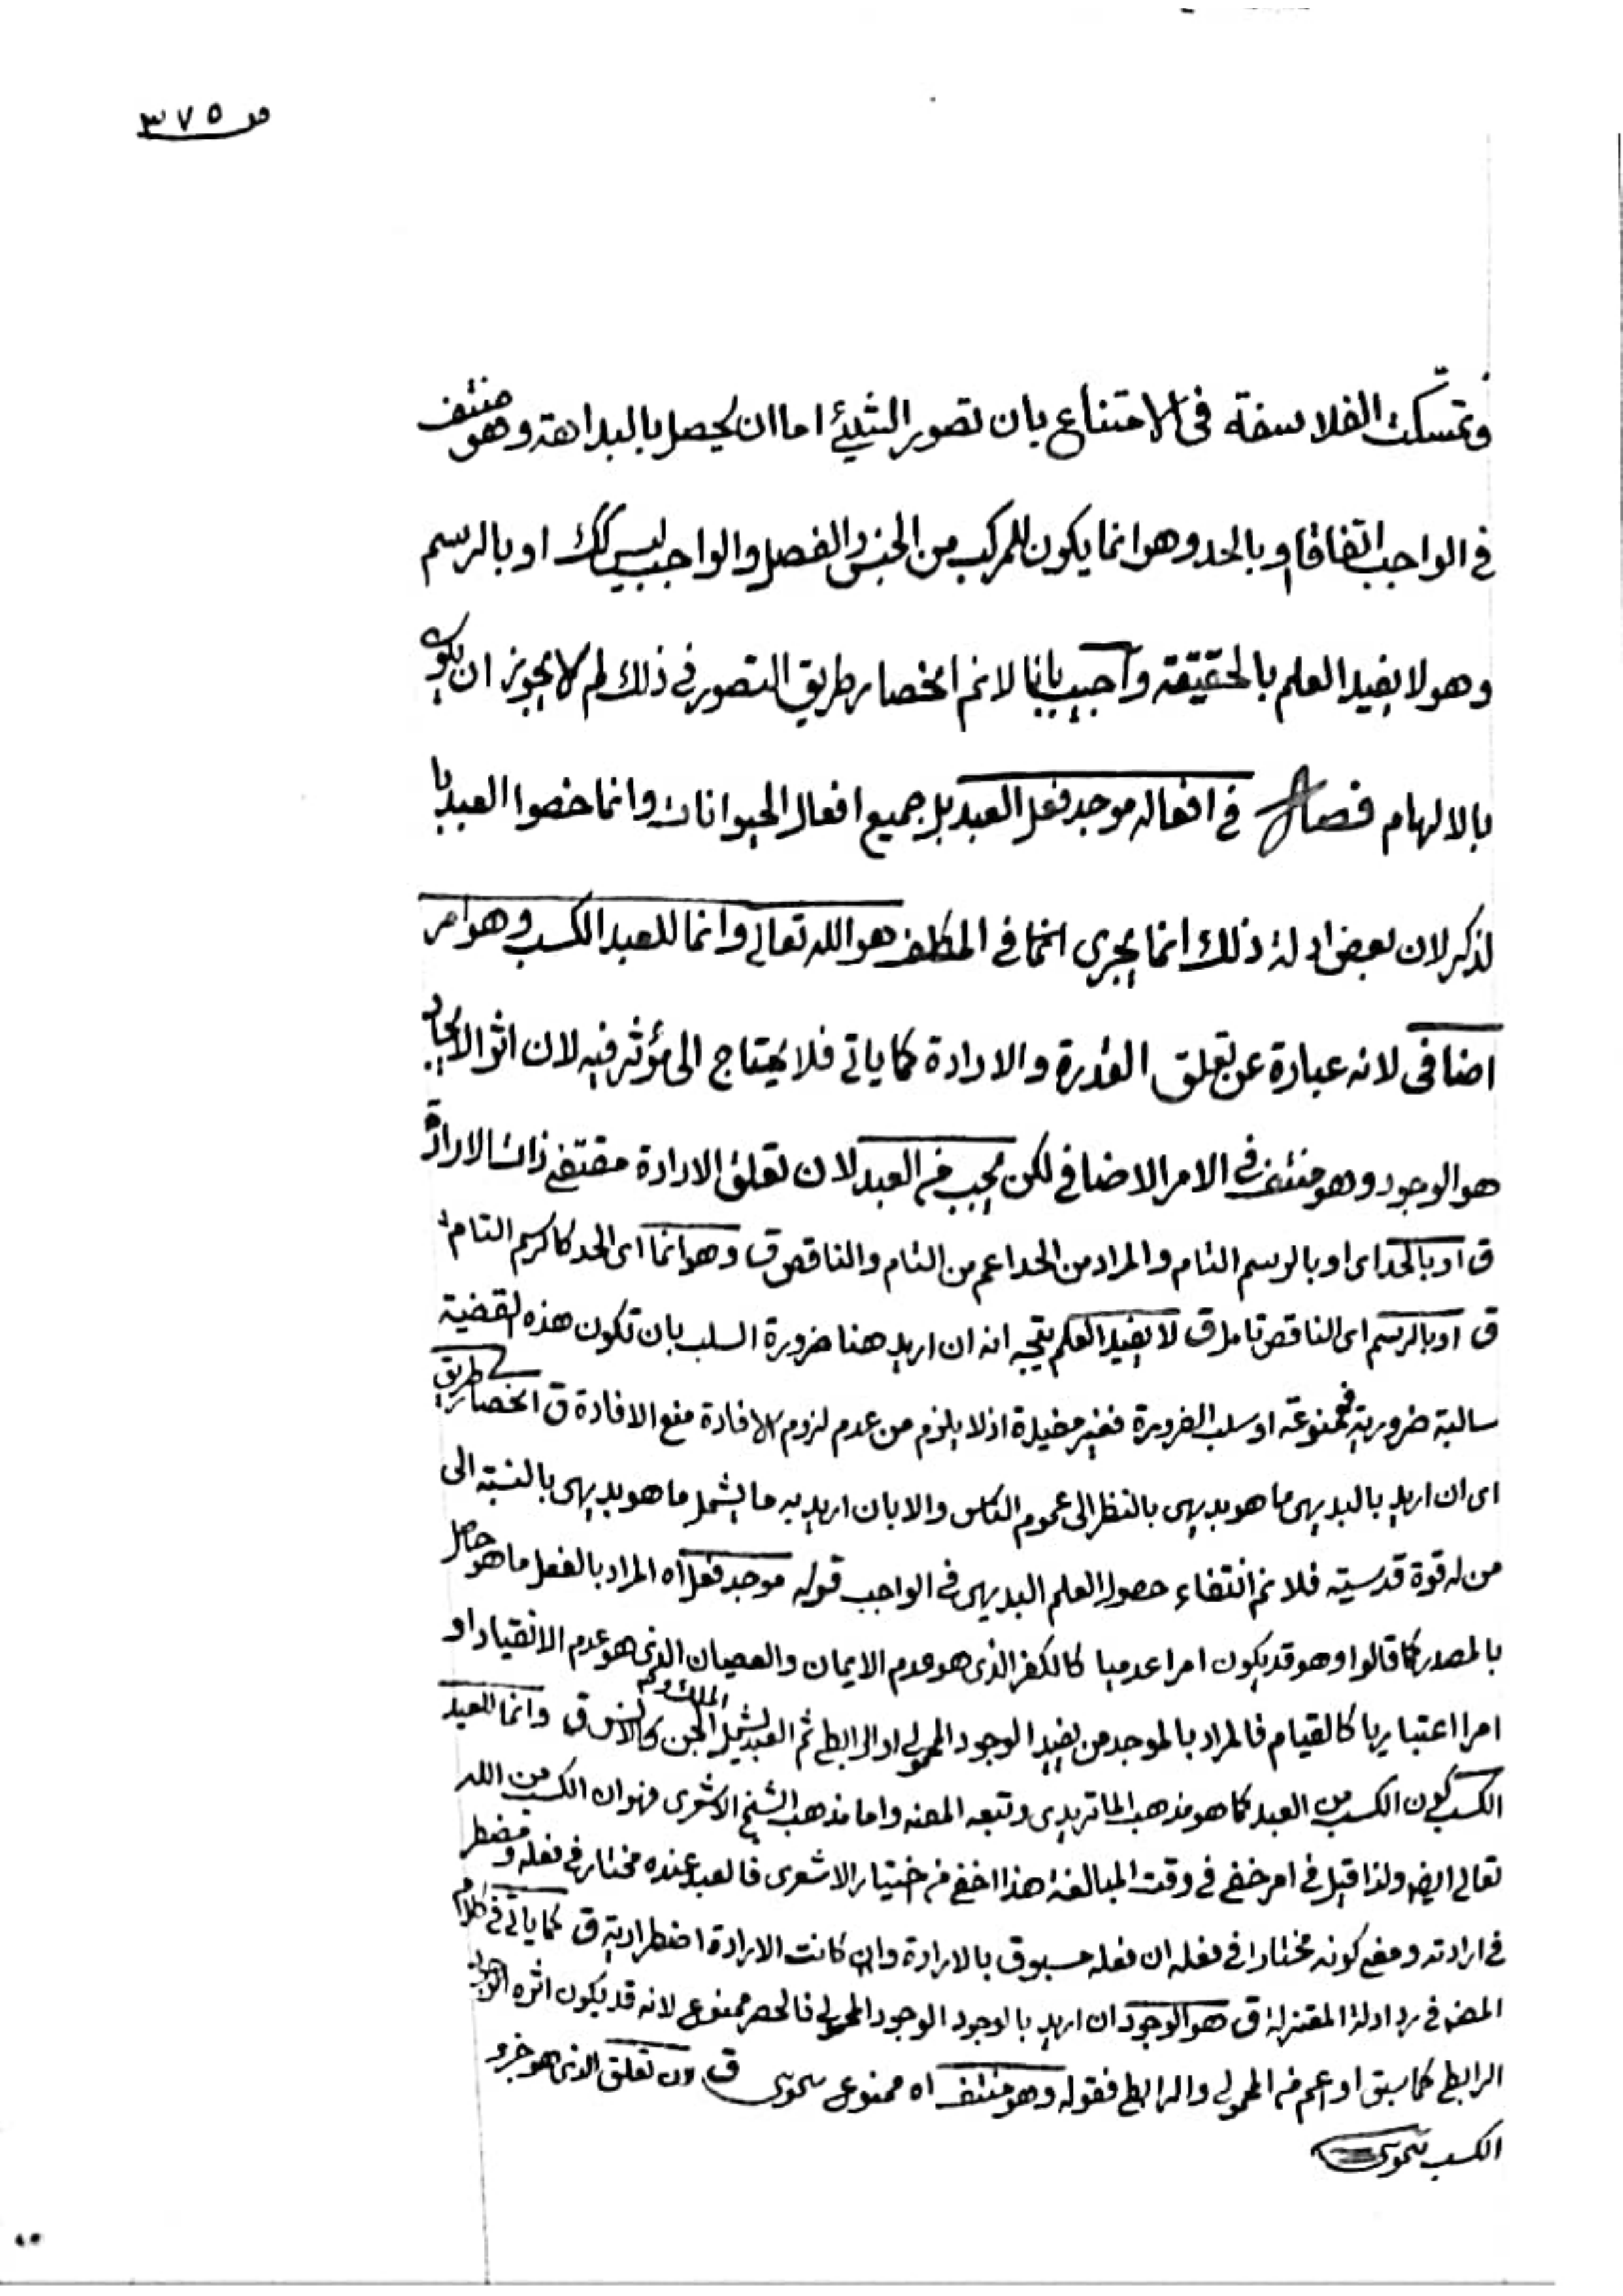 ص ٣٧٥
وتمسكت الفلاسفة فى الامتناع بان تصور الشيئ اما ان يحصل بالبداهة وهو منتف
فى الواجب اتفاقا او بالحد وهو انما يكون للمركب من الجنس والفصل والواجب ليس كك او بالرسم
وهو لا يفيد العلم بالحقيقة وأجيب بانا لا نم انحصار طريق التصور فى ذلك لم لا يجوز ان يكون
بالالهام فصل فى افعاله موجد فعل العبد بل جميع افعال الحيوانات وانما خصوا العبد با
لذكر لان بعض ادلة ذلك انما يجرى فى المكلف هو الله تعالى وانما للعبد الكسب وهو امر
اضافى لانه عبارة عن تعلق القدرة والارادة كما ياتى فلا يحتاج الى مؤثر فيه لان اثر الايجاد
هو الوجود وهو منتف فى الامر الاضافى لكن يجب من العبد لان تعلق الارادة مقتضى ذات الارادة
ق او بالحد اى او بالرسم التام والمراد من الحد اعم من التام والناقص ق وهو انما اى الحد كالرسم التام
ق او بالرسم اى الناقص تامل ق لا يفيد العلم يتجه انه ان اريد هنا ضرورة السلب بان تكون هذه القضية
سالبة ضرورية فممنوعة او سلب الضرورة فغير مفيدة اذ لا يلزم من عدم لزوم الافادة منع الافادة ق انحصار طريق
اى ان اريد بالبديهى ما هو بديهى بالنظر الى عموم الناس والا بان اريد به ما يشمل ما هو بديهى بالنسبة الى
من له قوة قدسية فلا نم انتفاء حصول العلم البديهى فى الواجب قوله موجد فعل اه المراد بالفعل ما هو حاصل
بالمصدر كما قالوا وهو قد يكون امرا عدميا كالكفر الذى هو عدم الايمان والعصيان الذى هو عدم الانقياد او
امرا اعتباريا كالقيام فالمراد بالموجد من يفيد الوجود المحمولى او الرابطى ثم العبد يشمل الملك والجن كالانس ق وانما للعبد
الكسب كون الكسب من العبد كما هو مذهب الماتريدى وتبعه المصنه واما مذهب الشيخ الاشعرى فهو ان الكسب من الله
تعالى ايضا ولذا قيل فى امر خفى فى وقت المبالغة هذا اخفى من اختيار الاشعرى فالعبد عنده مختار فى فعله ومضطر
فى ارادته ومعنى كونه مختارا فى فعله ان فعله مسبوق بالارادة وان كانت الارادة اضطرارية ق كما ياتى فى كلام
المصنه فى رد ادلة المعتزلة ق هو الوجود ان اريد بالوجود الوجود المحمولى فالحصر ممنوع لانه قد يكون اثره الوجود
الرابطى كما سبق او اعم من المحمولى والرابطى فقوله وهو منتف اه ممنوع ق تعلق الذى هو جزء
الكسب